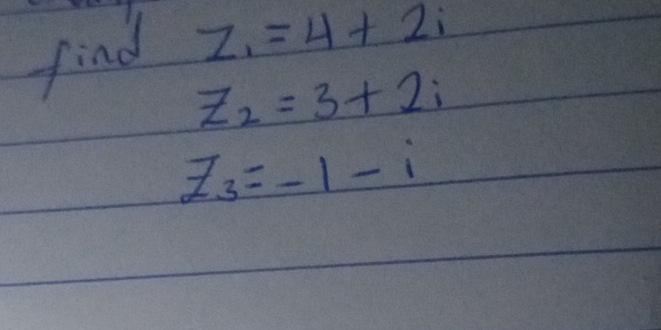 find z₁ = 4 + 2i
z₂ = 3 + 2i
z₃ = -1 - i